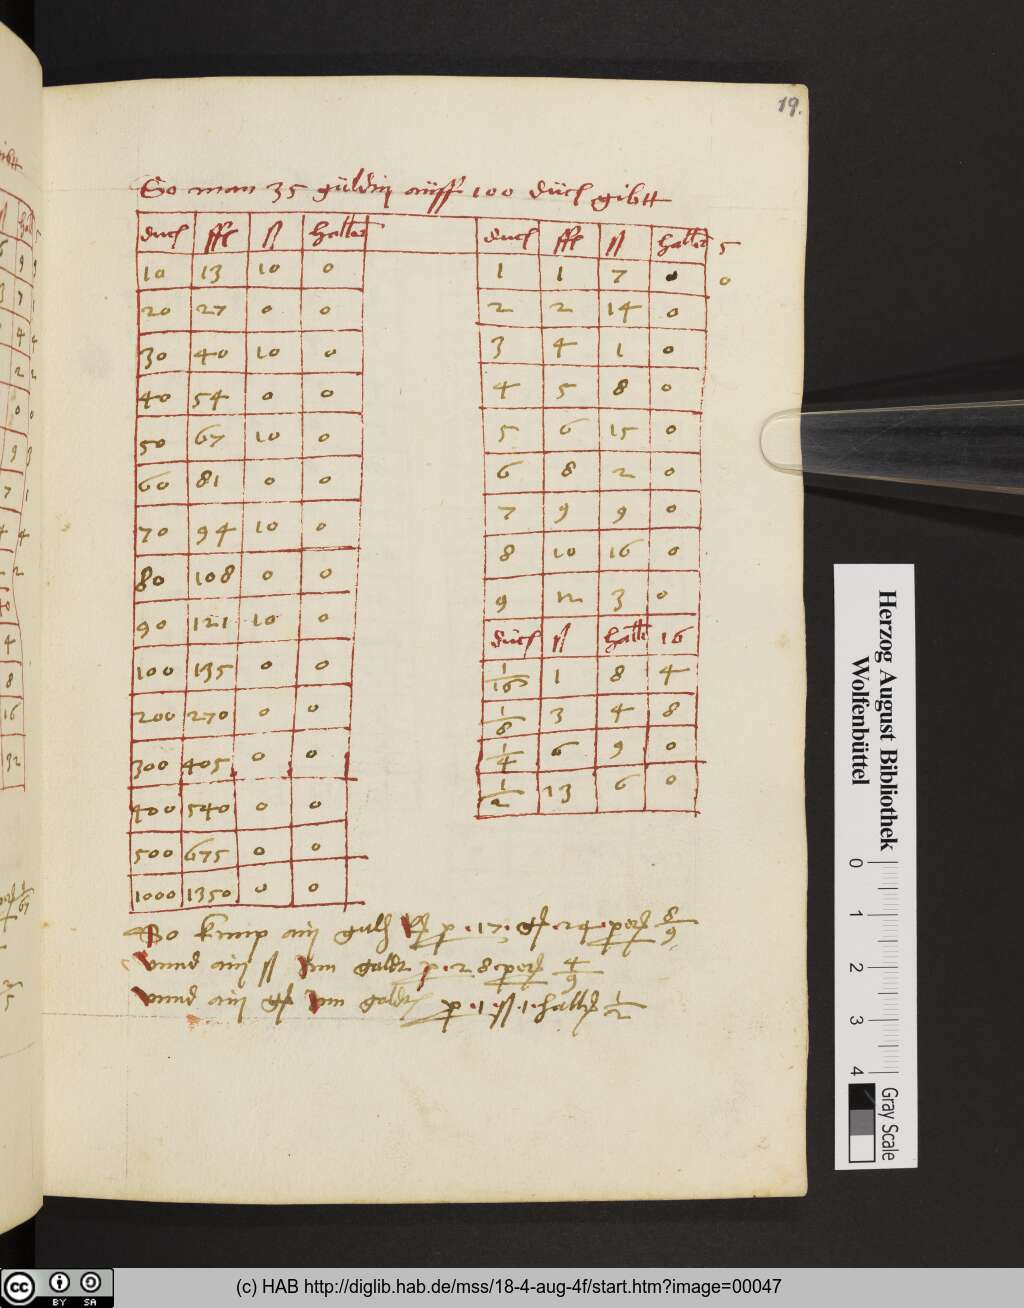 19.
So man 35 güldin aüff 100 düch gibtt
duch ffl ß haller
10 13 10 0
20 27 0 0
30 40 10 0
40 54 0 0
50 67 10 0
60 81 0 0
70 94 10 0
80 108 0 0
90 121 10 0
100 135 0 0
200 270 0 0
300 405 0 0
400 540 0 0
500 675 0 0
1000 1350 0 0
duch ffl ß haller 5
1 1 7 0 0
2 2 14 0
3 4 1 0
4 5 8 0
5 6 15 0
6 8 2 0
7 9 9 0
8 10 16 0
9 12 3 0
düch ß halle 16
1/16 1 8 4
1/8 3 4 8
1/4 6 9 0
1/2 13 6 0
So kump ain p · 17 · 24 · 8/9
vnnd ain ß Inn goldt p · 2 · 8 4/9
vnnd ain Inn p · 1 · ß · 1 · hall 1/2
Herzog August Bibliothek
Wolfenbüttel
0 1 2 3 4
Gray Scale
cc BY SA
(c) HAB http://diglib.hab.de/mss/18-4-aug-4f/start.htm?image=00047